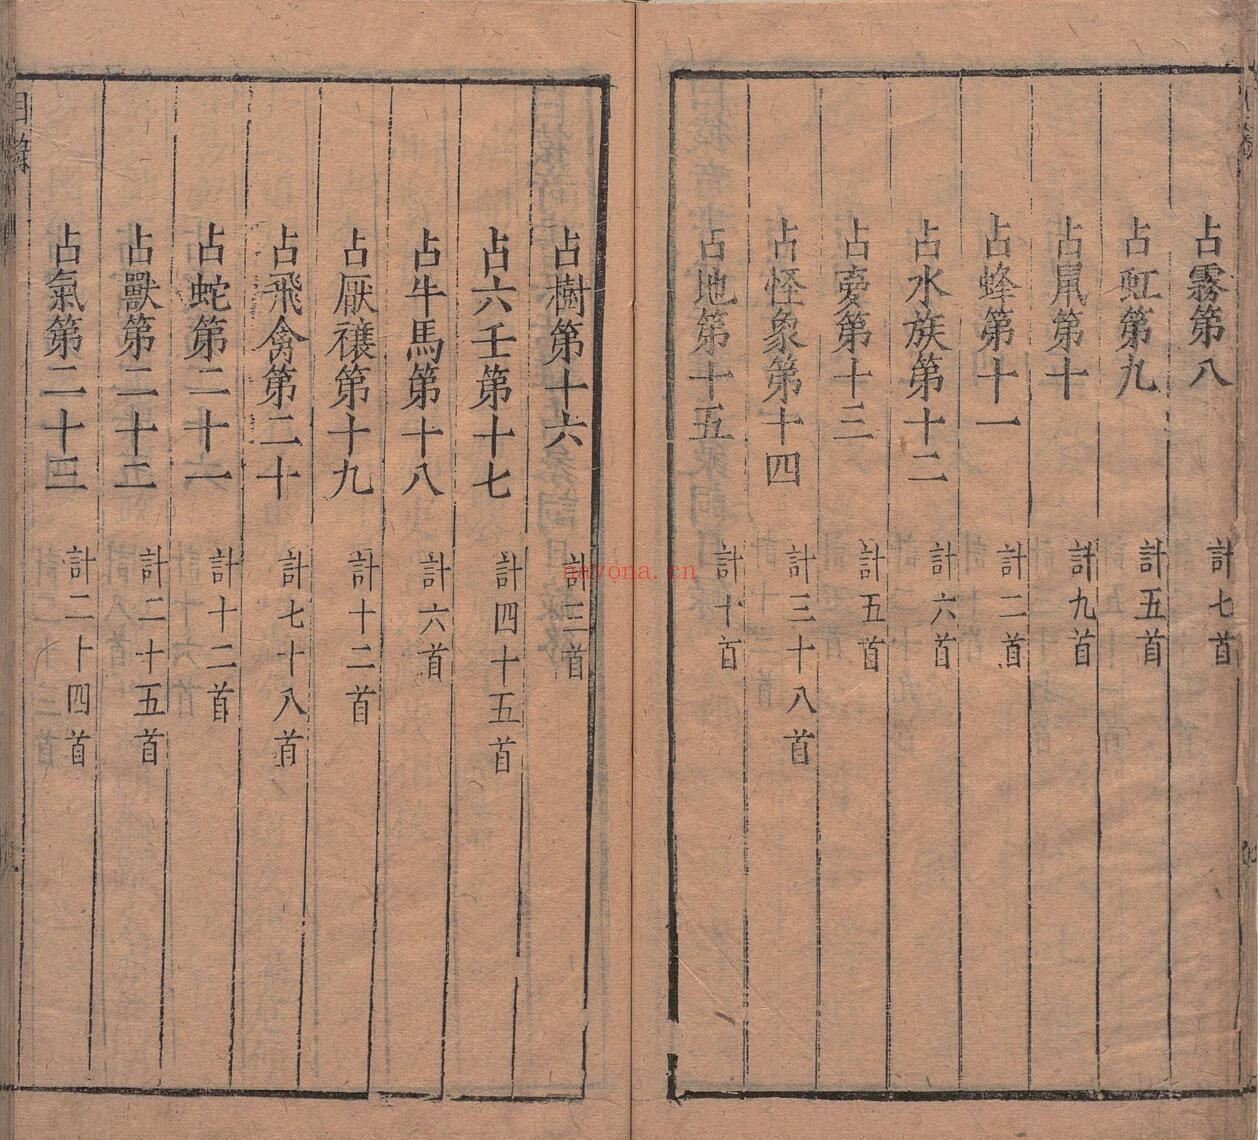 占霧第八 計七首
占虹第九 計五首
占鼠第十 計九首
占蜂第十一 計二首
占水族第十二 計六首
占夢第十三 計五首
占怪象第十四 計三十八首
占地第十五 計十首
占樹第十六 計三首
占六壬第十七 計四十五首
占牛馬第十八 計六首
占厭禳第十九 計十二首
占飛禽第二十 計七十八首
占蛇第二十一 計十二首
占獸第二十二 計二十五首
占氣第二十三 計二十四首
目錄
nayona.cn